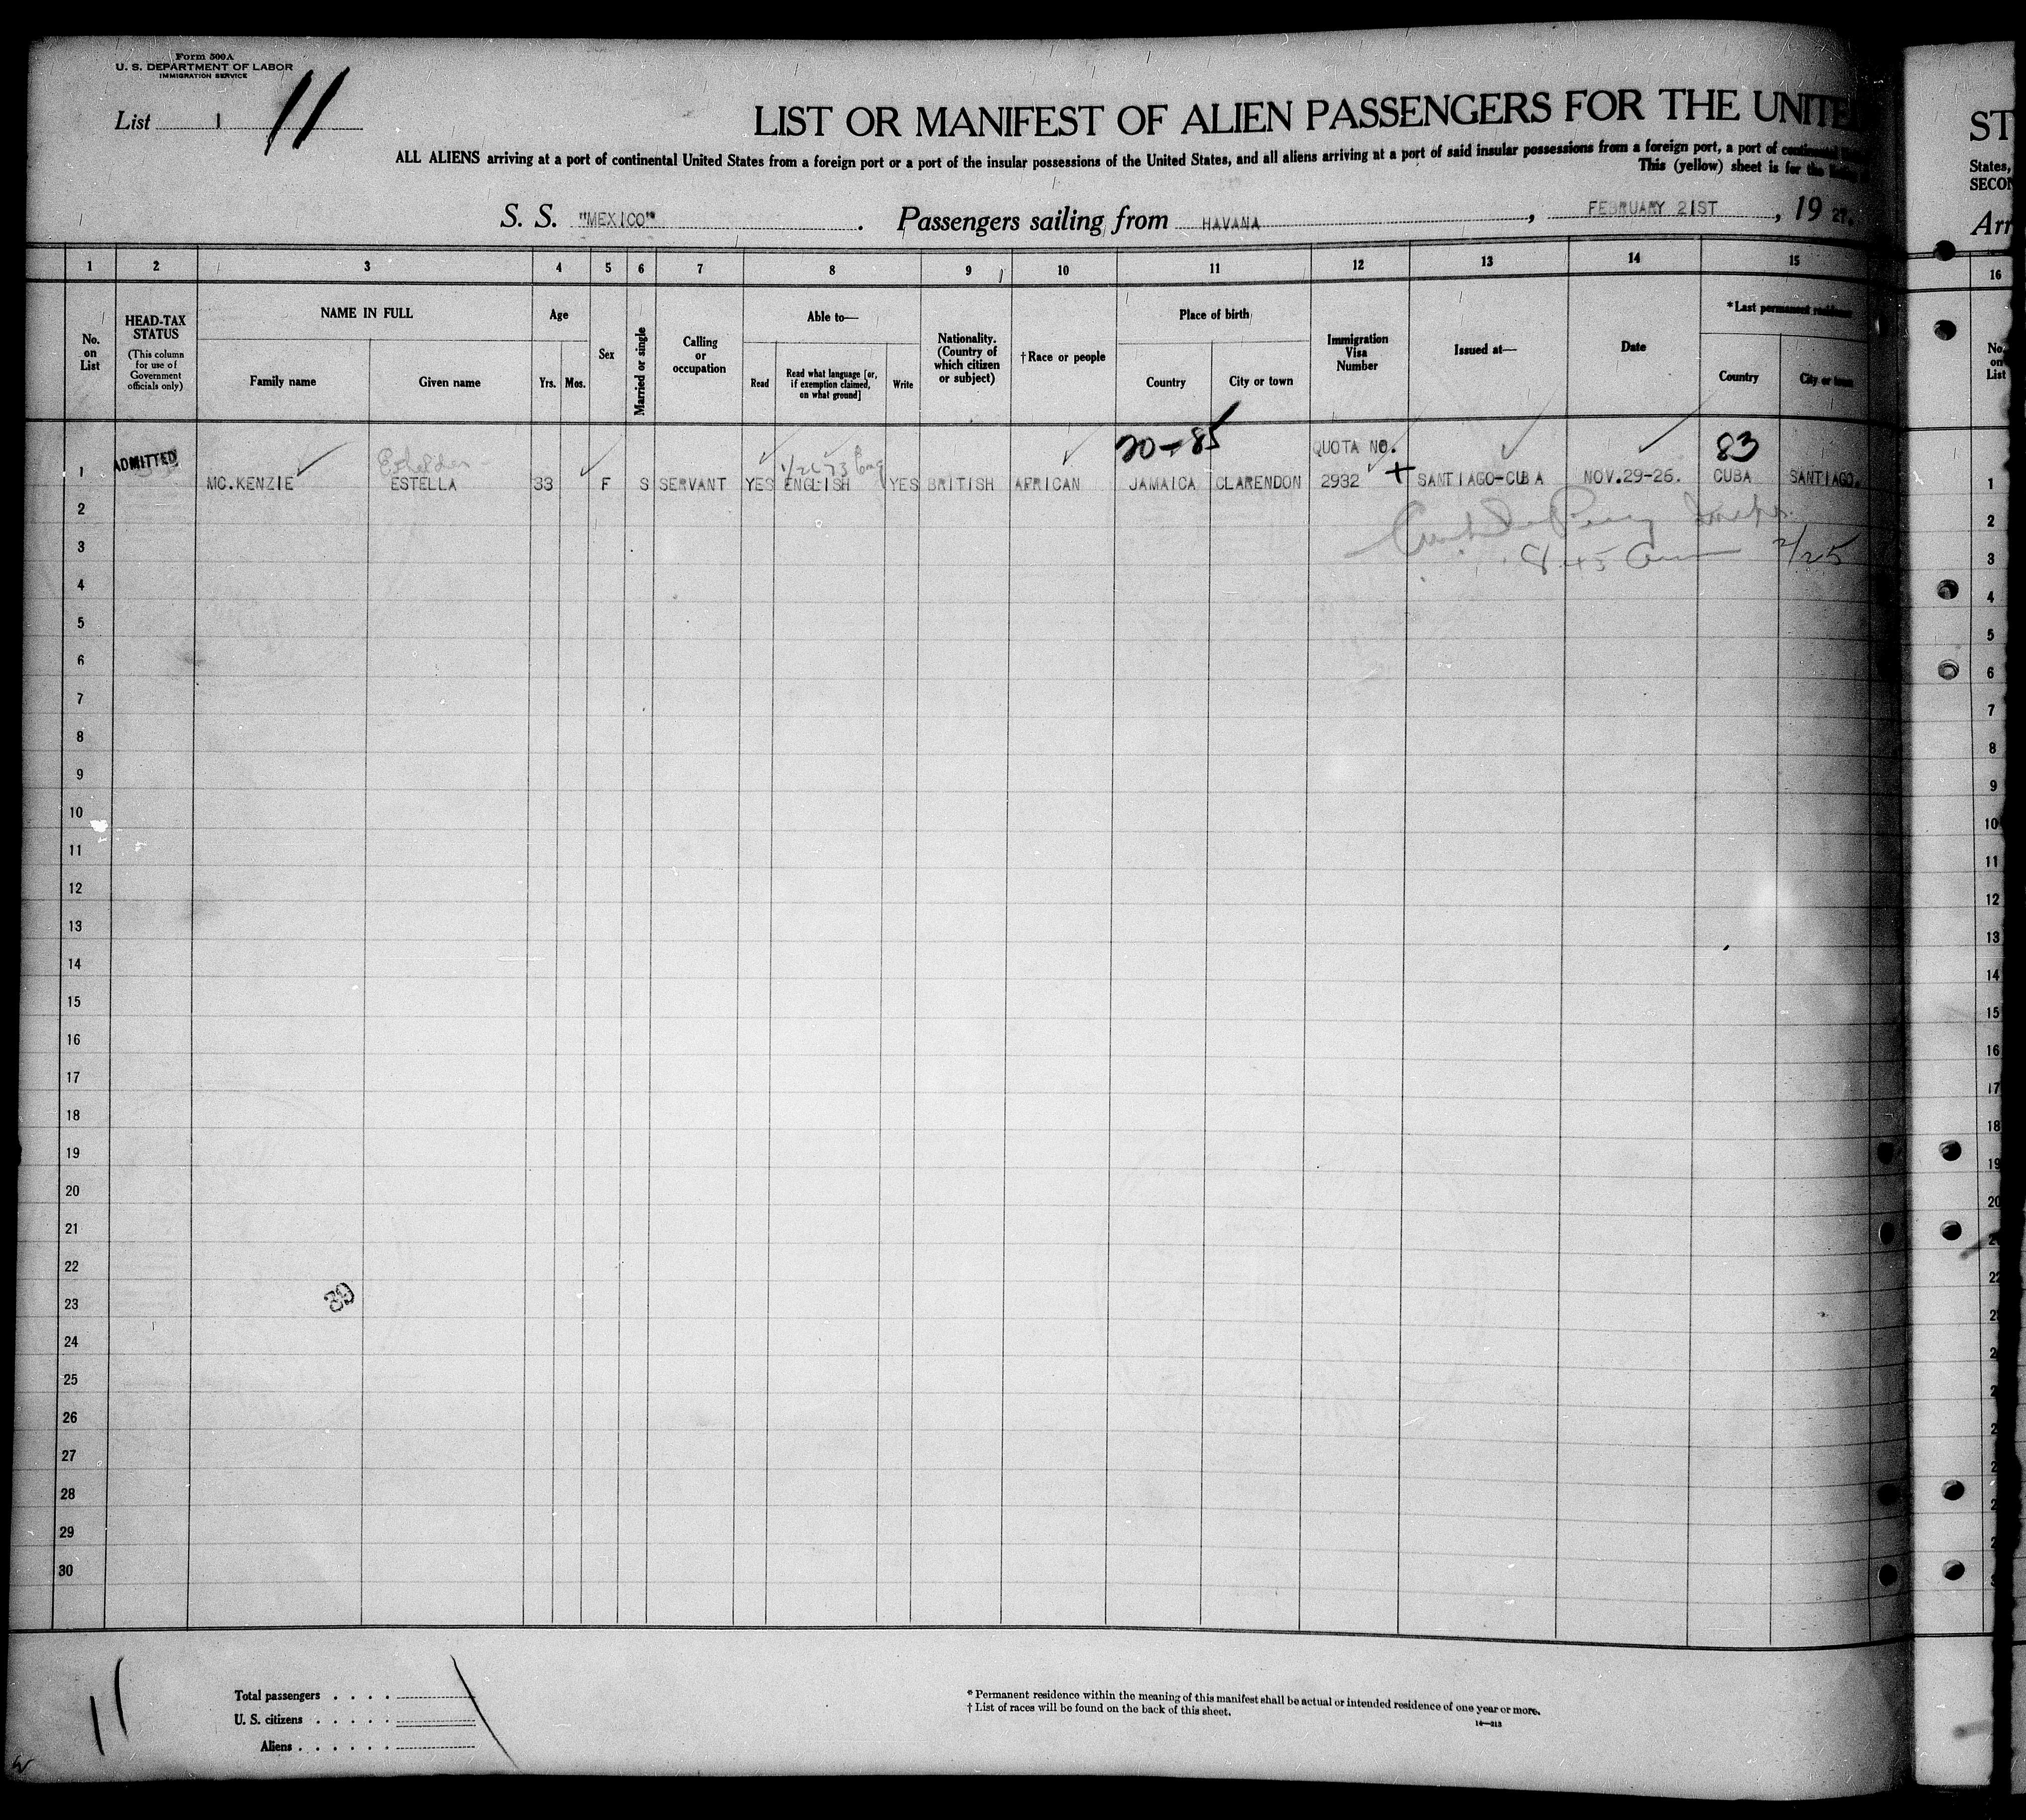 Form 500A
U. S. DEPARTMENT OF LABOR
IMMIGRATION SERVICE
List 1 11
LIST OR MANIFEST OF ALIEN PASSENGERS FOR THE UNITE
ALL ALIENS arriving at a port of continental United States from a foreign port or a port of the insular possessions of the United States, and all aliens arriving at a port of said insular possessions from a foreign port, a port of continental
This (yellow) sheet is for the
S. S. "MEXICO". Passengers sailing from HAVANA, FEBRUARY 21ST, 19 27.
ST
States,
SECON
Arr
1 2 3 4 5 6 7 8 9 10 11 12 13 14 15 16
No. on List
HEAD-TAX STATUS
(This column for use of Government officials only)
NAME IN FULL
Family name Given name
Age
Yrs. Mos.
Sex
Married or single
Calling or occupation
Able to—
Read
Read what language [or, if exemption claimed, on what ground]
Write
Nationality. (Country of which citizen or subject)
†Race or people
Place of birth
Country City or town
Immigration Visa Number
Issued at—
Date
*Last permanent residence
Country City or town
No. on List
20-85 QUOTA NO. 83
1 ADMITTED MC.KENZIE ESTELLA 33 F S SERVANT YES ENGLISH YES BRITISH AFRICAN JAMAICA CLARENDON 2932 + SANTIAGO-CUBA NOV.29-26. CUBA SANTIAGO. 1
2 2
3 8 45 2/25 3
4 4
5 5
6 6
7 7
8 8
9 9
10 10
11 11
12 12
13 13
14 14
15 15
16 16
17 17
18 18
19 19
20 20
21 2
22 22
23 2
24 2
25 2
26 2
27 2
28 2
29 2
30 3
39
11
Total passengers
U. S. citizens
Aliens
* Permanent residence within the meaning of this manifest shall be actual or intended residence of one year or more.
† List of races will be found on the back of this sheet.
14—213